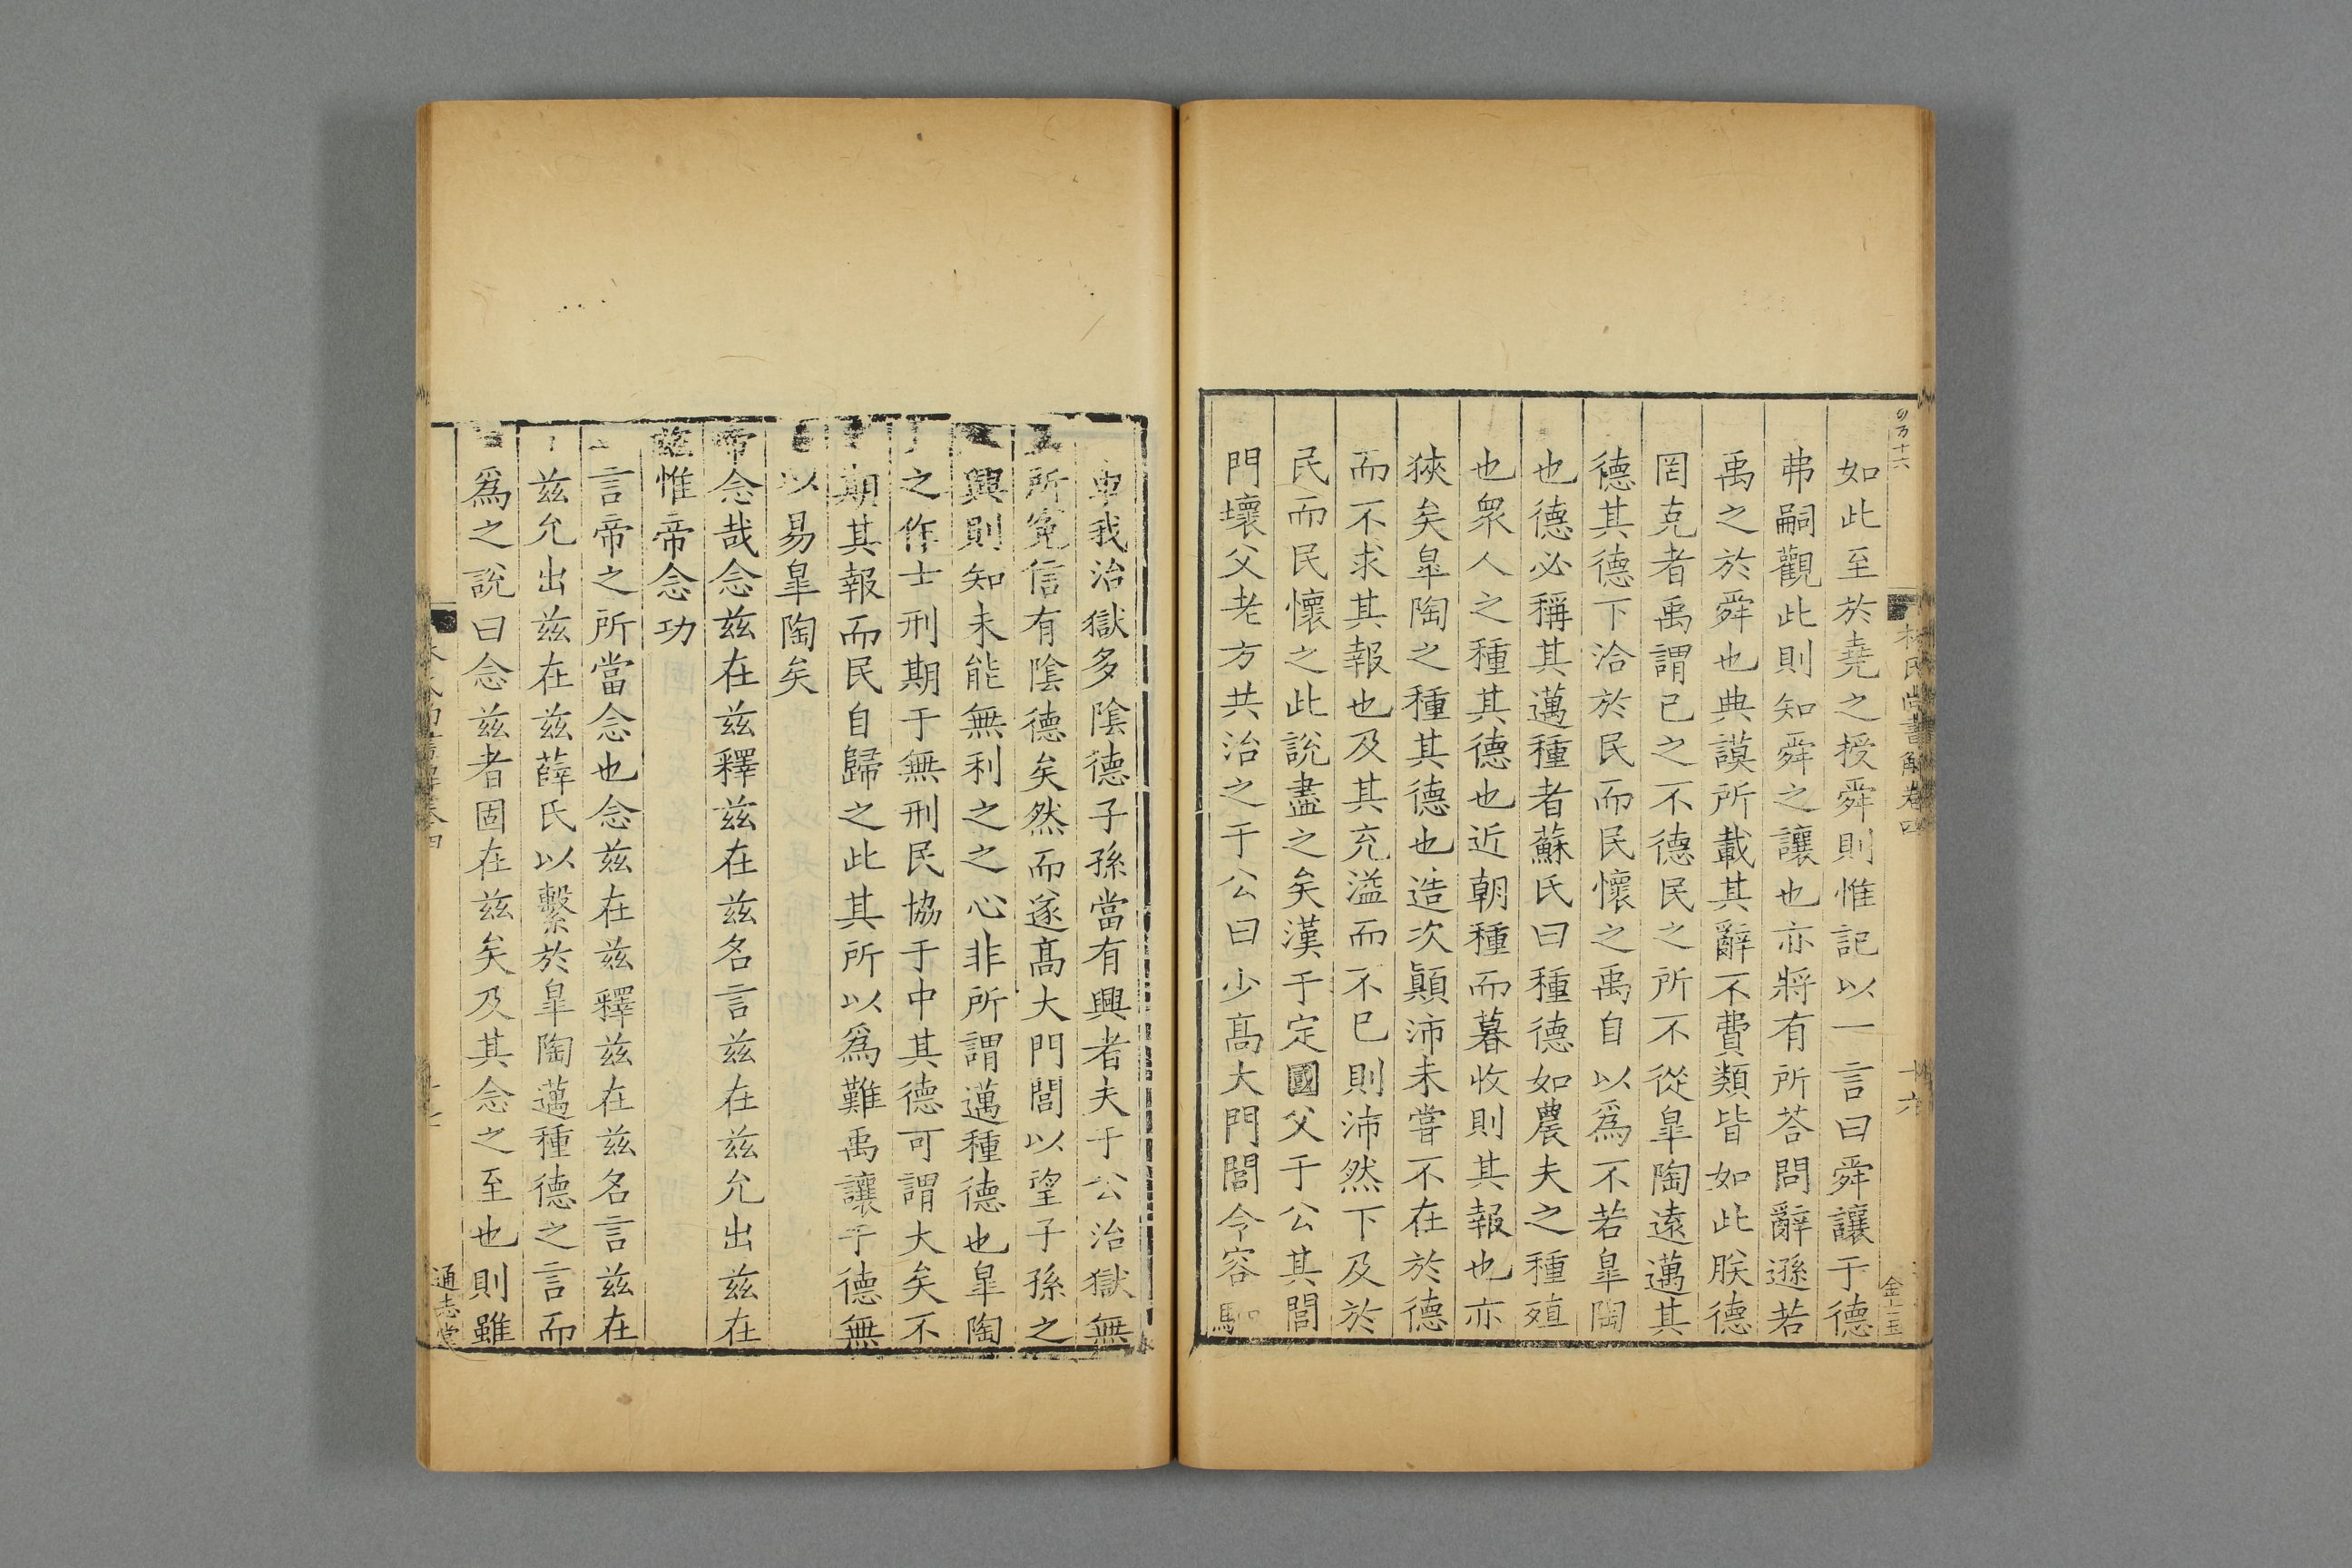 林氏尚書解卷四
十六
如此至於堯之授舜則惟記以一言曰舜讓于德
弗嗣觀此則知舜之讓也亦將有所荅問辭遜若
禹之於舜也典謨所載其辭不費類皆如此朕德
罔克者禹謂己之不德民之所不從皐陶遠邁其
德其德下洽於民而民懷之禹自以爲不若皐陶
也德必稱其邁種者蘇氏曰種德如農夫之種殖
也衆人之種其德也近朝種而暮收則其報也亦
狹矣皐陶之種其德也造次顚沛未嘗不在於德
而不求其報也及其充溢而不已則沛然下及於
民而民懷之此說盡之矣漢于定國父于公其閭
門壞父老方共治之于公曰少髙大門閭令容駟
車我治獄多隂德子孫當有興者夫于公治獄無
所寃信有隂德矣然而遂髙大門閭以望子孫之
興則知未能無利之之心非所謂邁種德也皐陶
之作士刑期于無刑民協于中其德可謂大矣不
期其報而民自歸之此其所以爲難禹讓于德無
以易皐陶矣
帝念哉念兹在兹釋兹在兹名言兹在兹允出兹在
兹惟帝念功
言帝之所當念也念兹在兹釋兹在兹名言兹在
兹允出兹在兹薛氏以繫於皐陶邁種德之言而
爲之說曰念兹者固在兹矣及其念之至也則雖
通志堂